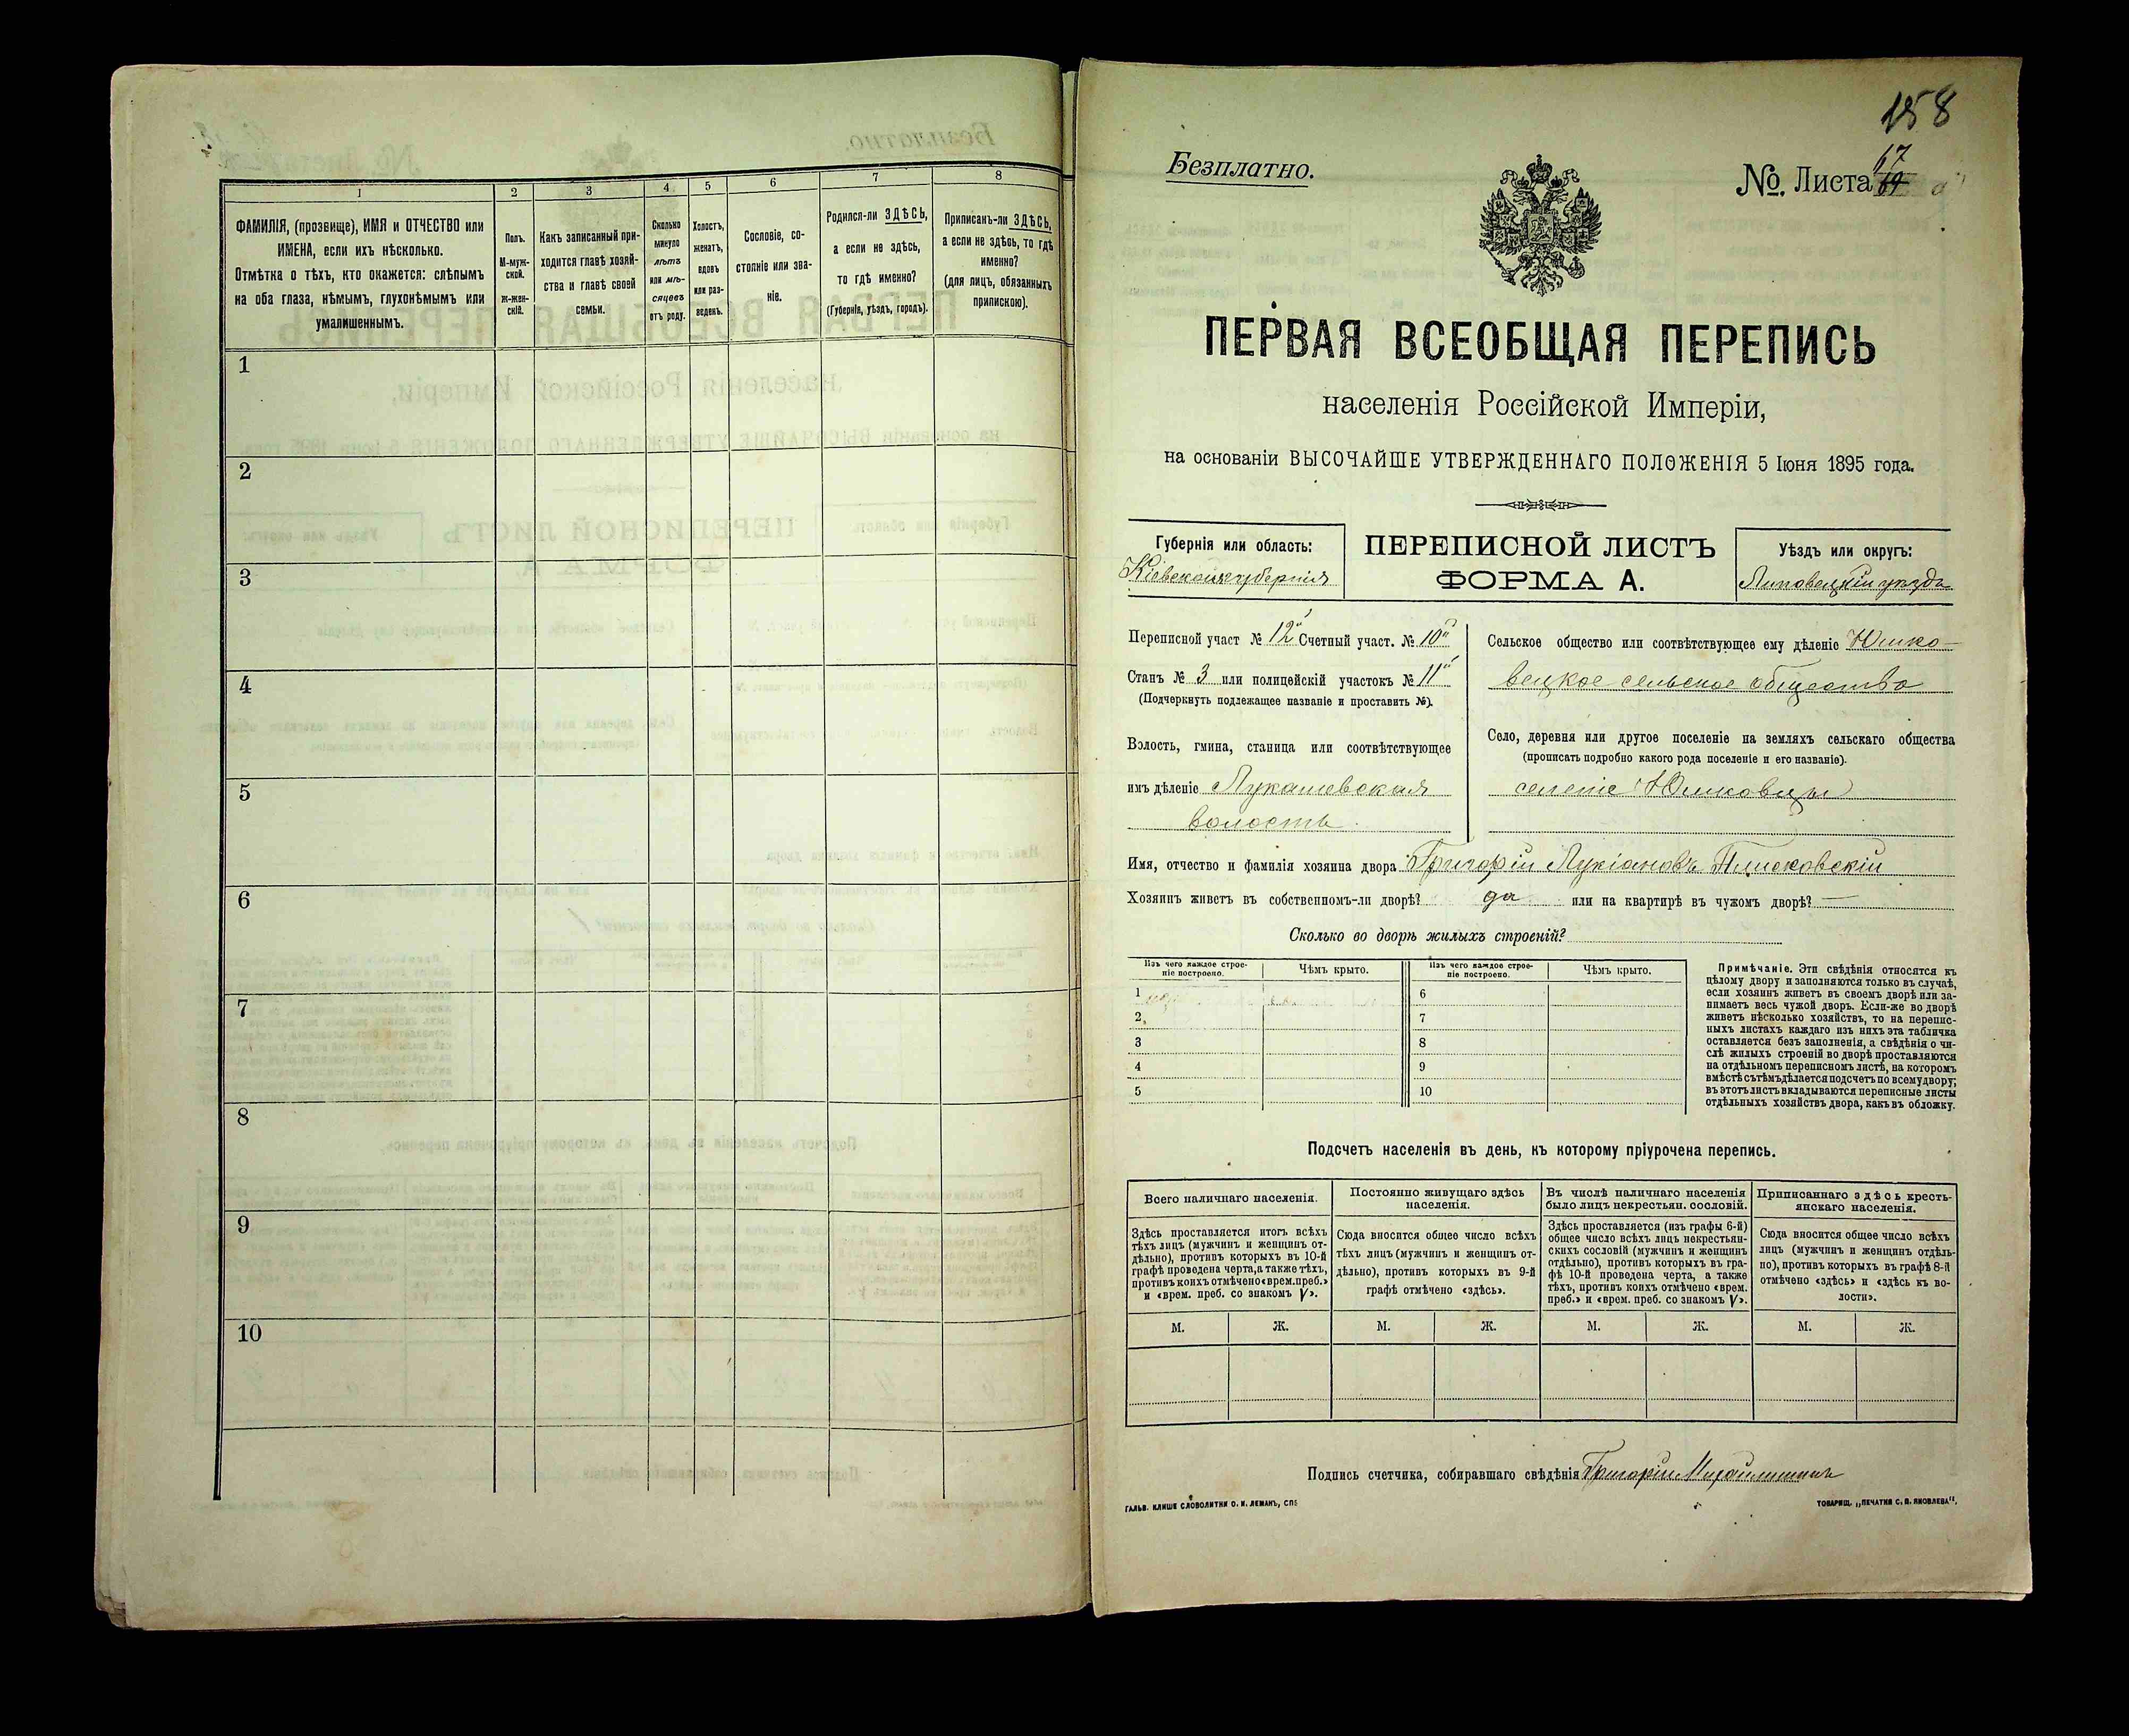 1
2
3
4
5
6
7
8
ФАМИЛІЯ, (прозвище), ИМЯ и ОТЧЕСТВО или
ИМЕНА, если ихъ нѣсколько.
Отмѣтка о тѣхъ, кто окажется: слѣпымъ
на оба глаза, нѣмымъ, глухонѣмымъ или
умалишеннымъ.
Полъ.
М-муж-
ской.
ж-жен-
скій.
Какъ записанный при-
ходится главѣ хозяй-
ства и главѣ своей
семьи.
Сколько
минуло
лѣтъ
или мѣ-
сяцевъ
отъ роду.
Холостъ,
женатъ,
вдовъ
или раз-
веденъ.
Сословіе, со-
стояніе или зва-
ніе.
Родился-ли ЗДѢСЬ,
а если не здѣсь,
то гдѣ именно?
(Губернія, уѣздъ, городъ).
Приписанъ-ли ЗДѢСЬ,
а если не здѣсь, то гдѣ
именно?
(для лицъ, обязанныхъ
припискою).
1
2
3
4
5
6
7
8
9
10
158
Безплатно.
№. Листа 67
ПЕРВАЯ ВСЕОБЩАЯ ПЕРЕПИСЬ
населенія Россійской Имперіи,
на основаніи ВЫСОЧАЙШЕ УТВЕРЖДЕННАГО ПОЛОЖЕНІЯ 5 Іюня 1895 года.
Губернія или область:
Кіевская губернія
ПЕРЕПИСНОЙ ЛИСТЪ
ФОРМА А.
Уѣздъ или округъ:
Липовецкій уѣздъ
Переписной участ № 12й Счетный участ. № 10й
Станъ № 3 или полицейскій участокъ № 11й
(Подчеркнуть подлежащее названіе и проставить №).
Волость, гмина, станица или соотвѣтствующее
имъ дѣленіе Лукашевская
волость.
Сельское общество или соотвѣтствующее ему дѣленіе Юшко-
вецкое сельское общество
Село, деревня или другое поселеніе на земляхъ сельскаго общества
(прописать подробно какого рода поселеніе и его названіе).
селеніе Юшковцы
Имя, отчество и фамилія хозяина двора Григорій Лукіановъ Плисковскій
Хозяинъ живетъ въ собственномъ-ли дворѣ? да или на квартирѣ въ чужомъ дворѣ? —
Сколько во дворѣ жилыхъ строеній?
Изъ чего каждое строе-
ніе построено.
Чѣмъ крыто.
Изъ чего каждое строе-
ніе построено.
Чѣмъ крыто.
1
2
3
4
5
6
7
8
9
10
Примѣчаніе. Эти свѣдѣнія относятся къ
цѣлому двору и заполняются только въ случаѣ,
если хозяинъ живетъ въ своемъ дворѣ или за-
нимаетъ весь чужой дворъ. Если-же во дворѣ
живетъ нѣсколько хозяйствъ, то на перепис-
ныхъ листахъ каждаго изъ нихъ эта табличка
оставляется безъ заполненія, а свѣдѣнія о чи-
слѣ жилыхъ строеній во дворѣ проставляются
на отдѣльномъ переписномъ листѣ, на которомъ
вмѣстѣ съ тѣмъ дѣлается подсчетъ по всему двору;
въ этотъ листъ вкладываются переписные листы
отдѣльныхъ хозяйствъ двора, какъ въ обложку.
Подсчетъ населенія въ день, къ которому пріурочена перепись.
Всего наличнаго населенія.
Постоянно живущаго здѣсь
населенія.
Въ числѣ наличнаго населенія
было лицъ некрестьян. сословій.
Приписаннаго здѣсь кресть-
янскаго населенія.
Здѣсь проставляется итогъ всѣхъ
тѣхъ лицъ (мужчинъ и женщинъ от-
дѣльно), противъ которыхъ въ 10-й
графѣ проведена черта, а также тѣхъ,
противъ коихъ отмѣчено «врем. преб.»
и «врем. преб. со знакомъ V».
Сюда вносится общее число всѣхъ
тѣхъ лицъ (мужчинъ и женщинъ от-
дѣльно), противъ которыхъ въ 9-й
графѣ отмѣчено «здѣсь».
Здѣсь проставляется (изъ графы 6-й)
общее число всѣхъ лицъ некрестьян-
скихъ сословій (мужчинъ и женщинъ
отдѣльно), противъ которыхъ въ гра-
фѣ 10-й проведена черта, а также
тѣхъ, противъ коихъ отмѣчено «врем.
преб.» и «врем. преб. со знакомъ V».
Сюда вносится общее число всѣхъ
лицъ (мужчинъ и женщинъ отдѣль-
но), противъ которыхъ въ графѣ 8-й
отмѣчено «здѣсь» и «здѣсь къ во-
лости».
М. Ж. М. Ж. М. Ж. М. Ж.
Подпись счетчика, собиравшаго свѣдѣнія Григорій
ГАЛЬВ. КЛИШЕ СЛОВОЛИТНИ О. И. ЛЕМАНЪ, СПБ
ТОВАРИЩ. „ПЕЧАТНЯ С. П. ЯКОВЛЕВА".